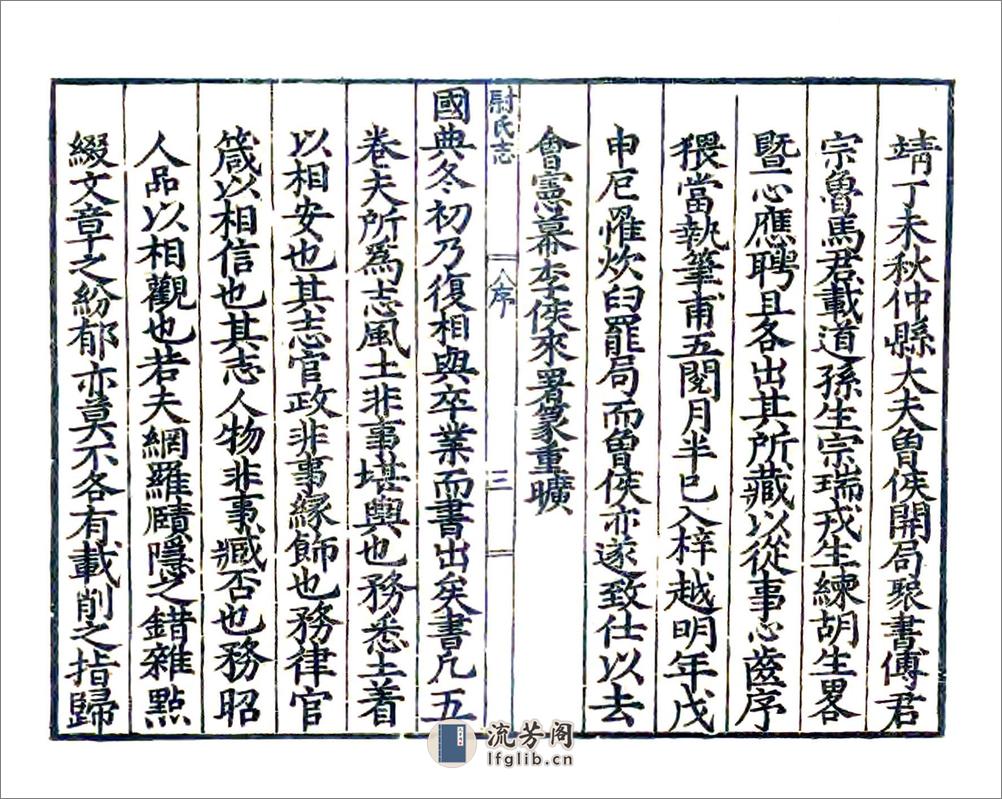 靖丁未秋仲縣大夫魯侯開局聚書傅君
宗魯馬君載道孫生宗瑞戎生練胡生畧
暨一心應聘且各出其所藏以從事心齒序
猥當執筆甫五閱月半已入梓越明年戊
申厄罹炊臼罷局而魯侯亦遂致仕以去
會憲幕李侯來署篆重曠
尉氏志
序
三
國典冬初乃復相與卒業而書出矣書凡五
卷夫所爲志風土非事堪輿也務悉土著
以相安也其志官政非事緣飾也務律官
箴以相信也其志人物非事臧否也務昭
人品以相觀也若夫網羅賾隱之錯雜點
綴文章之紛郁亦莫不各有載削之指歸
流芳阁
lfglib.cn